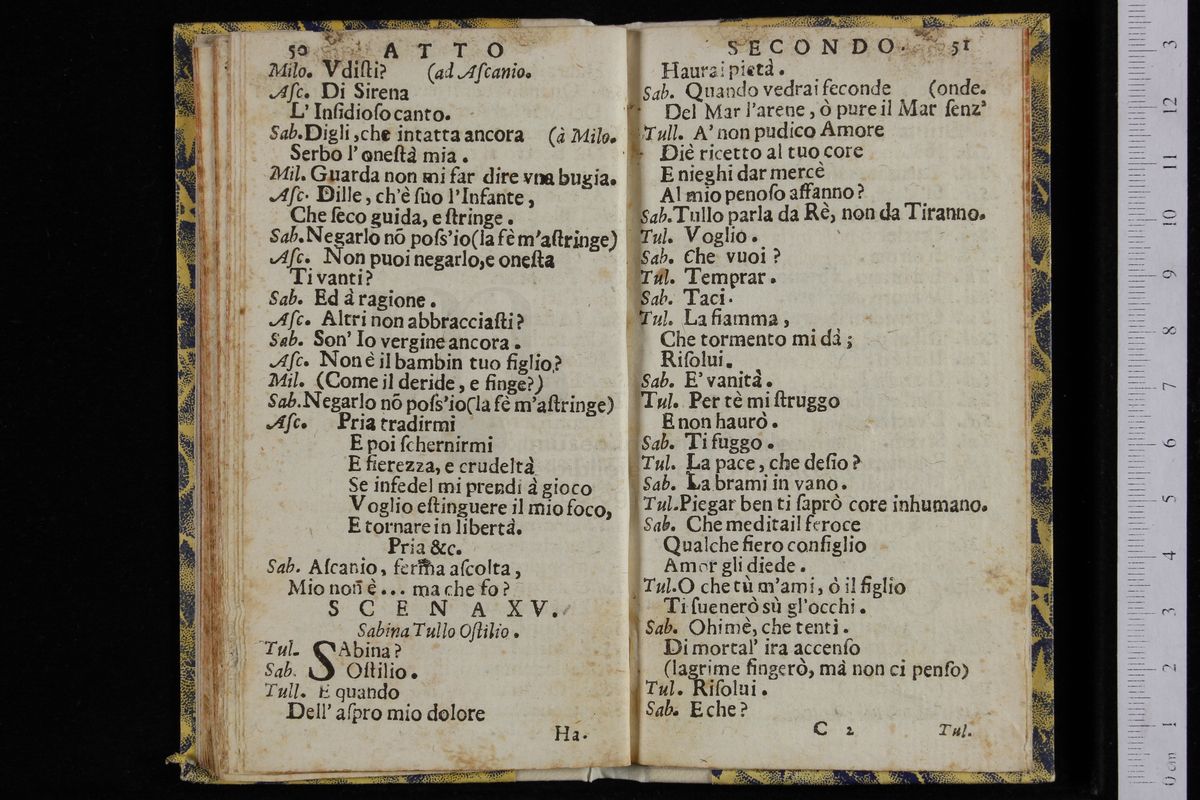 50 ATTO
Milo. Vdiſti? (ad Aſcanio.
Aſc. Di Sirena
L' Inſidioſo canto.
Sab. Digli, che intatta ancora (à Milo.
Serbo l'oneſtà mia.
Mil. Guarda non mi far dire vna bugia.
Aſc. Dille, ch'è ſuo l'Infante,
Che ſeco guida, e ſtringe.
Sab. Negarlo nõ poſs'io (la fè m'aſtringe)
Aſc. Non puoi negarlo, e oneſta
Ti vanti?
Sab. Ed à ragione.
Aſc. Altri non abbracciaſti?
Sab. Son' Io vergine ancora.
Aſc. Non è il bambin tuo figlio?
Mil. (Come il deride, e finge?)
Sab. Negarlo nõ poſs'io (la fè m'aſtringe)
Aſc. Pria tradirmi
E poi ſchernirmi
E fierezza, e crudeltà
Se infedel mi prendi à gioco
Voglio eſtinguere il mio foco,
E tornare in libertà.
Pria &c.
Sab. Aſcanio, ferma aſcolta,
Mio non è... ma che fo?
SCENA XV.
Sabina Tullo Oſtilio.
Tul. SAbina?
Sab. Oſtilio.
Tull. E quando
Dell' aſpro mio dolore
Ha.
SECONDO. 51
Haurai pietà.
Sab. Quando vedrai feconde (onde.
Del Mar l'arene, ò pure il Mar ſenz'
Tull. A' non pudico Amore
Diè ricetto al tuo core
E nieghi dar mercè
Al mio penoſo affanno?
Sab. Tullo parla da Rè, non da Tiranno.
Tul. Voglio.
Sab. Che vuoi?
Tul. Temprar.
Sab. Taci.
Tul. La fiamma,
Che tormento mi dà;
Riſolui.
Sab. E' vanità.
Tul. Per tè mi ſtruggo
E non haurò.
Sab. Ti fuggo.
Tul. La pace, che deſio?
Sab. La brami in vano.
Tul. Piegar ben ti ſaprò core inhumano.
Sab. Che medita il feroce
Qualche fiero conſiglio
Amor gli diede.
Tul. O che tù m'ami, ò il figlio
Ti ſuenerò sù gl'occhi.
Sab. Ohimè, che tenti.
Di mortal' ira accenſo
(lagrime fingerò, mà non ci penſo)
Tul. Riſolui.
Sab. E che?
C 2 Tul.
0 cm 1 2 3 4 5 6 7 8 9 10 11 12 3